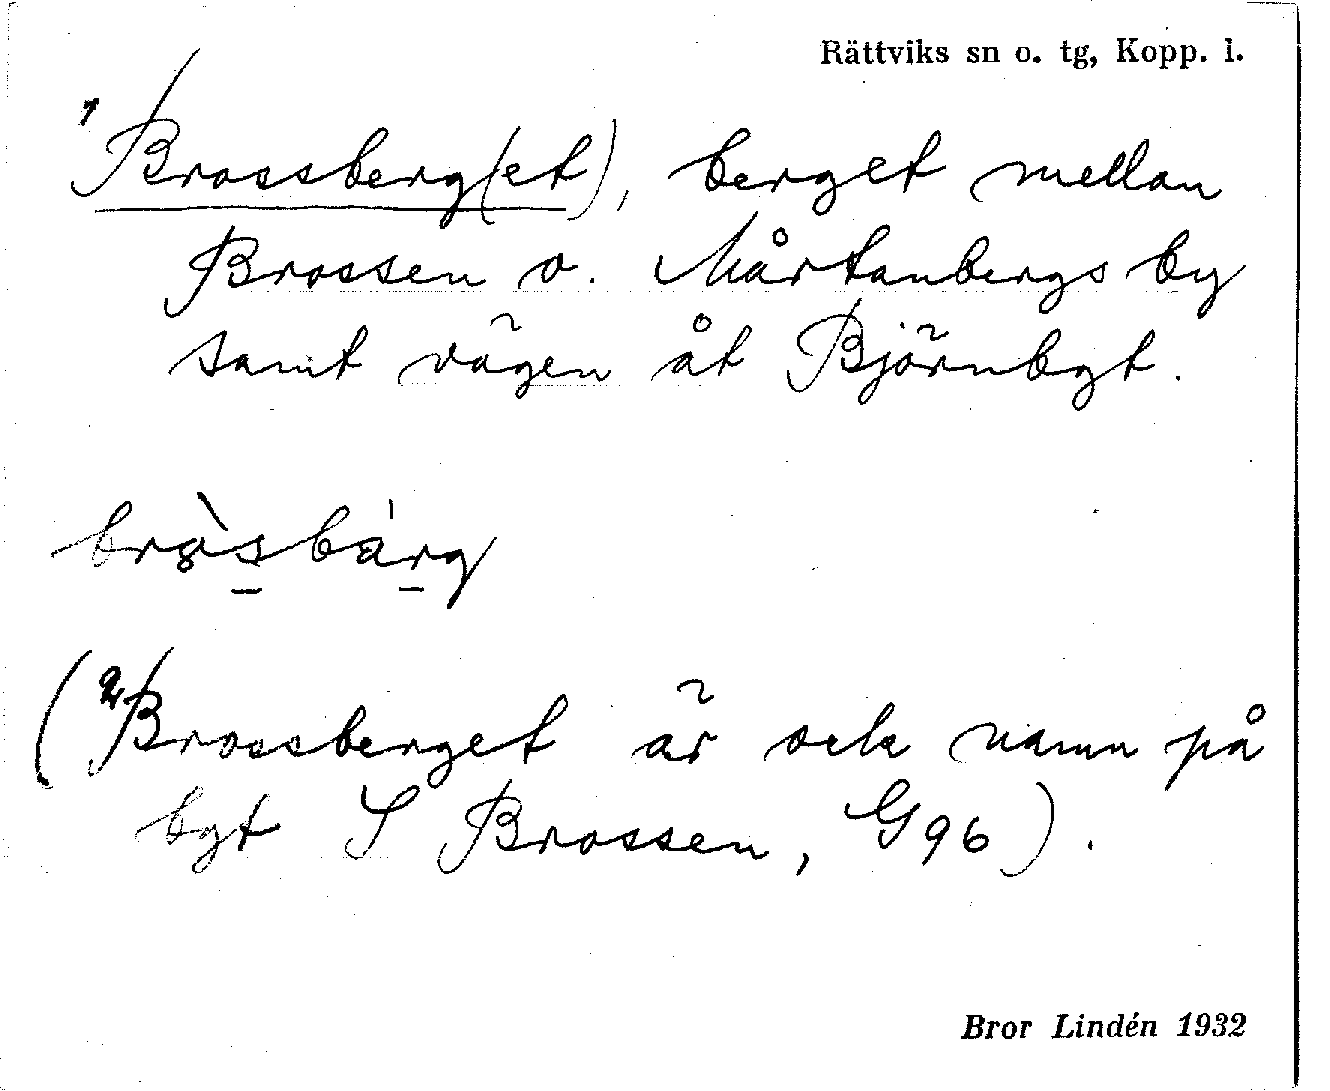 Rättviks sn o. tg, Kopp. l.
1 Brossberg(et), berget mellan
Brossen o. Mårtanbergs by
samt vägen åt Björnbgt.
bròsbàrg
(2 Brossberget är ock namn på
bgt S Brossen, G96).
Bror Lindén 1932